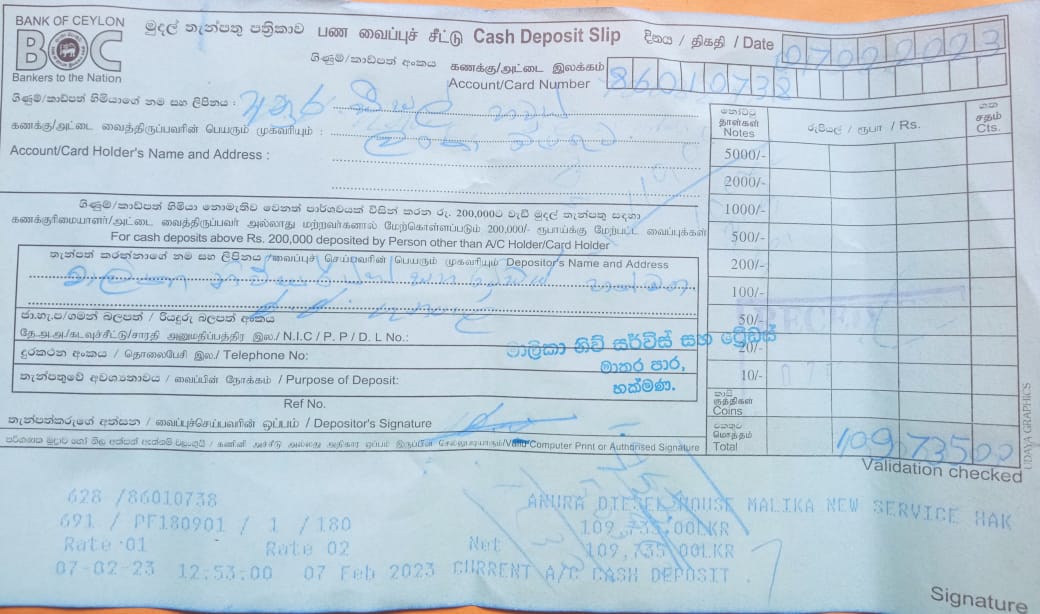 BANK OF CEYLON
BOC
Bankers to the Nation
මුදල් තැන්පතු පත්‍රිකාව பண வைப்புச் சீட்டு Cash Deposit Slip
දිනය / திகதி / Date 07022023
ගිණුම්/කාඩ්පත් අංකය கணக்கு/அட்டை இலக்கம்
Account/Card Number 86010738
ගිණුම්/කාඩ්පත් හිමියාගේ නම සහ ලිපිනය : අනුර ඩීසල් හවුස්
கணக்கு/அட்டை வைத்திருப்பவரின் பெயரும் முகவரியும் :
Account/Card Holder's Name and Address :
නෝට්ටු
தாள்கள்
Notes
රුපියල් / ரூபா / Rs.
ශත
சதம்
Cts.
5000/-
2000/-
1000/-
500/-
200/-
100/-
50/-
20/-
10/-
කාසි
குத்திகள்
Coins
එකතුව
மொத்தம்
Total 109,735 00
ගිණුම්/කාඩ්පත් හිමියා නොමැතිව වෙනත් පාර්ශවයක් විසින් කරන රු. 200,000ට වැඩි මුදල් තැන්පතු සඳහා
கணக்குரிமையாளர்/அட்டை வைத்திருப்பவர் அல்லாது மற்றவர்களால் மேற்கொள்ளப்படும் 200,000/- ரூபாய்க்கு மேற்பட்ட வைப்புக்கள்
For cash deposits above Rs. 200,000 deposited by Person other than A/C Holder/Card Holder
තැන්පත් කරන්නාගේ නම සහ ලිපිනය /வைப்புச் செய்பவரின் பெயரும் முகவரியும் Depositor's Name and Address
ජා.හැ.ප/ගමන් බලපත් / රියදුරු බලපත් අංකය
தே.அ.அ/கடவுச்சீட்டு/சாரதி அனுமதிப்பத்திர இல./ N.I.C / P. P / D. L No.:
දුරකථන අංකය / தொலைபேசி இல./ Telephone No:
තැන්පතුවේ අවශ්‍යතාවය / வைப்பின் நோக்கம் / Purpose of Deposit:
මාලිකා නිව් සර්විස් සහ ට්‍රේඩස්
මාතර පාර,
හක්මණ.
Ref No.
තැන්පත්කරුගේ අත්සන / வைப்புச்செய்பவரின் ஒப்பம் / Depositor's Signature
Valid Computer Print or Authorised Signature
UDAYA GRAPHICS
Validation checked
628 /86010738 ANURA DIESEL HOUSE MALIKA NEW SERVICE HAK
691 / PF180901 / 1 /180 109,735.00LKR
Rate 01 Rate 02 Net 109,735.00LKR
07-02-23 12:53:00 07 Feb 2023 CURRENT A/C CASH DEPOSIT
Signature